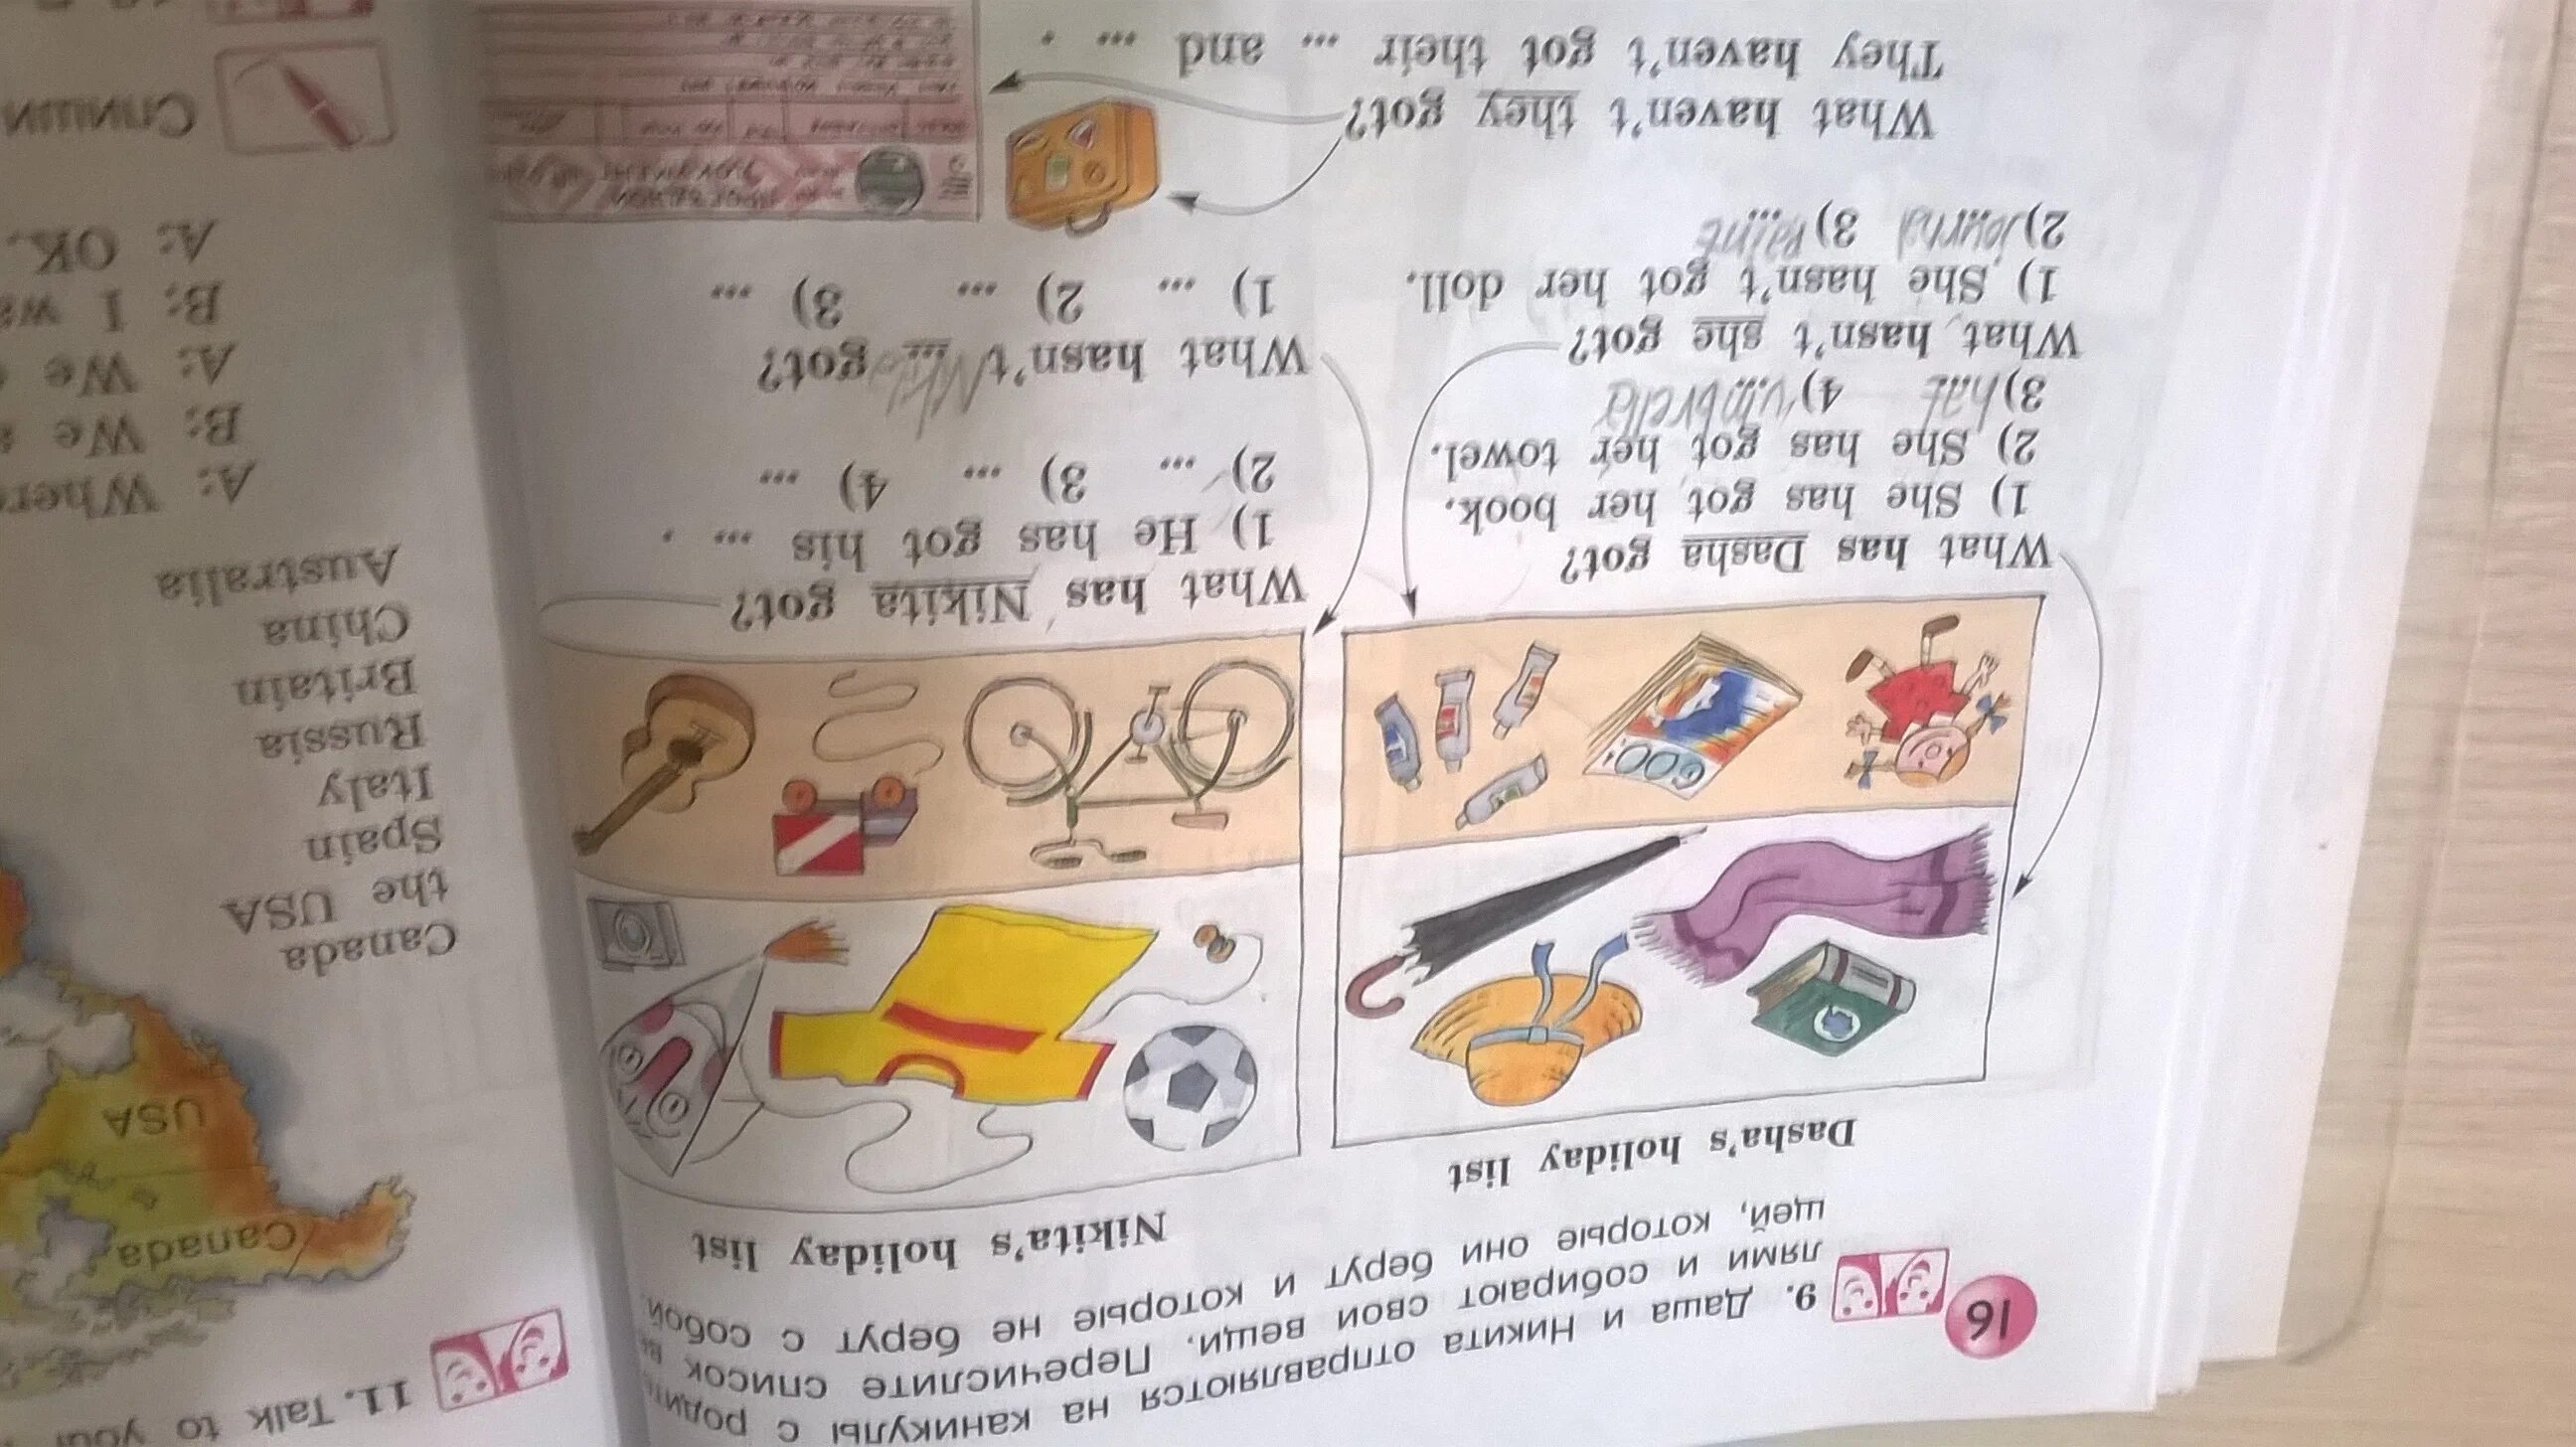 16
9. Даша и Никита отправляются на каникулы с
лями и собирают свои вещи. Перечислите список
щей, которые они берут и которые не берут с собой.
Dasha's holiday list
Nikita's holiday list
GOO!
What has Dasha got?
1) She has got her book.
2) She has got her towel.
3) hat 4) umbrella
What hasn't she got?
1) She hasn't got her doll.
2) Journal 3) paint
What has Nikita got?
1) He has got his ... .
2) ... 3) ... 4) ...
What hasn't ... got?
1) ... 2) ... 3) ...
What haven't they got?
They haven't got their ... and ... .
11. Talk to your
Canada
USA
Canada
the USA
Spain
Italy
Russia
Britain
China
Australia
A:
B: We
A: We
B: I
A: OK.
Спиши